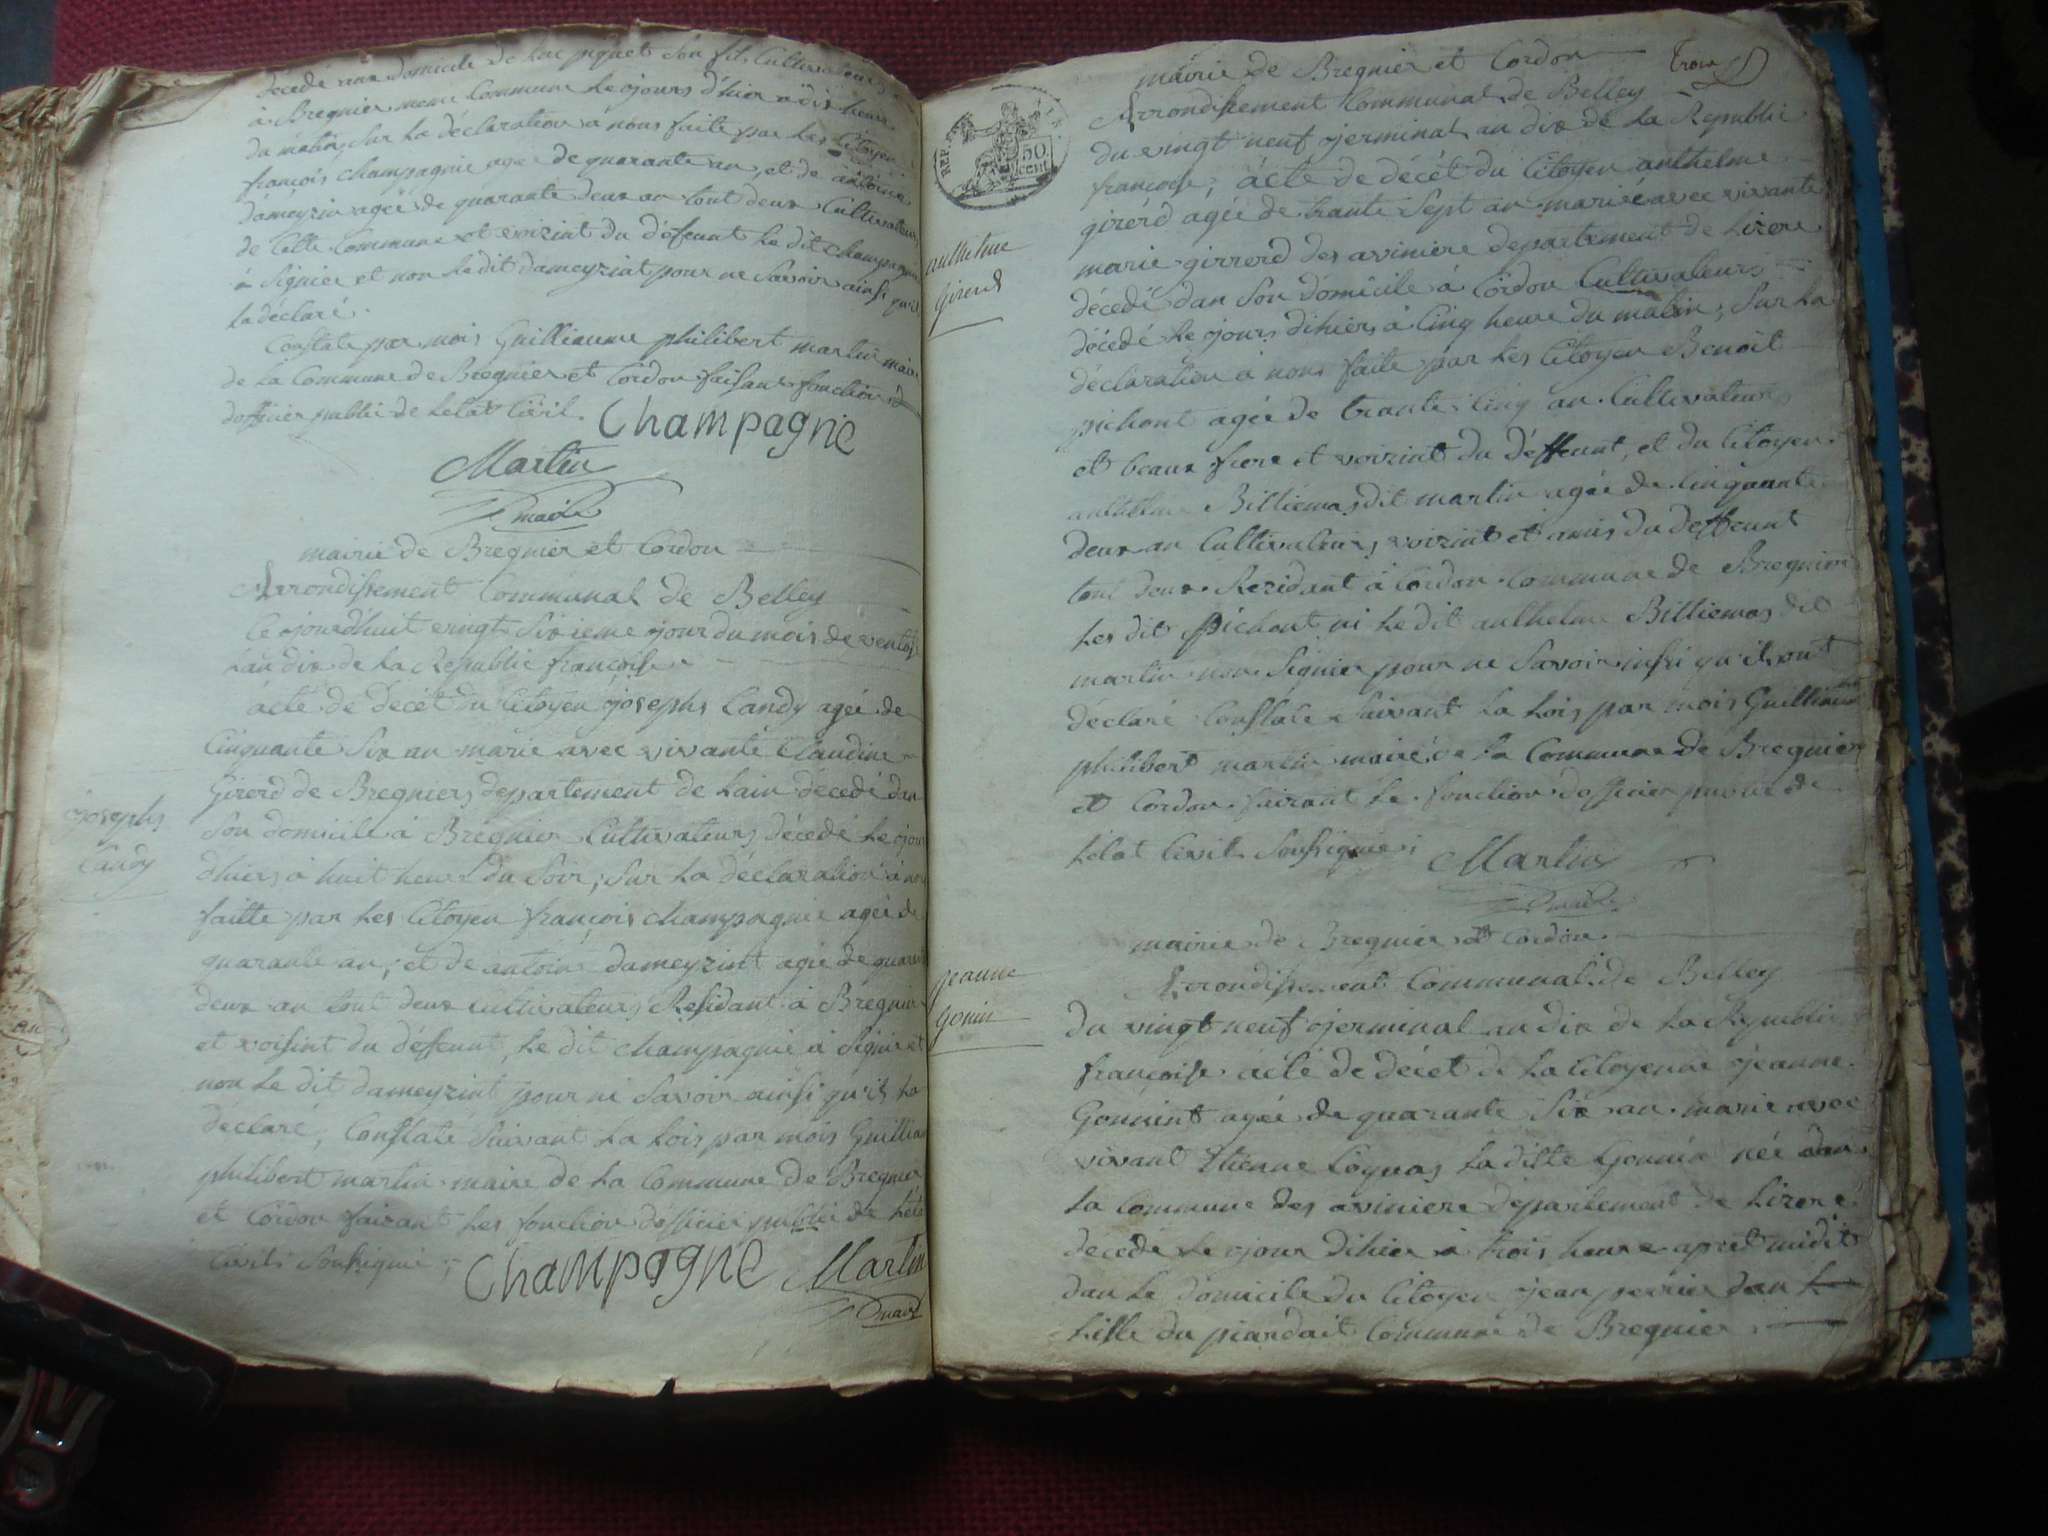 décédé dan domicile de luc piquet son fils Cultivateur
à Bregnier meme Commune le ojours d'hier à dix heure
du matin, sur la déclaration à nous faite par les Citoyen
françois champagnie agée de quarante an, et de antoine
dameyzin agée de quarante deux an tout deux Cultivateurs
de Cette Commune et voizint du déffeunt le dit champagnie
à Signier et non le dit dameyziat pour ne Savoir ainsi qu'il
la déclaré.
Constate par mois Guilliaume philibert martin maire
de la Commune de Bregnier et Cordon faisant fonction
dofficier public de letat Civil.
Champagne
Martin
maire
mairie de Bregnier et Cordon
Arrondissement Communal de Belley
Ce ojourdhuit vingt Sixieme ojour du mois de ventose
lan dix de la Republic françoise
acte de décét du Citoyen ojosephs Candy agée de
Cinquante Six an marié avec vivante Claudine
Girerd de Bregniers departement de lain décedé dan
Son domicile à Bregnier Cultivateurs décedé le ojour
dhiers à huit heure du Soir, Sur la déclaration à nou
faitte par les Citoyen françois champagnie agée de
quarante an, et de antoine dameyzint agée de quarant
deux an tout deux Cultivateurs Residant à Bregnier
et voisint du déffeunt, le dit champagnie à Signie et
non le dit dameyzint pour ne Savoir ainsi qu'il la
déclaré, Constate Suivant la lois par mois Guilliau
philibert martin maire de la Commune de Bregnier
et Cordon faizant les fonction dofficier public de letat
Civil Sousigné;
Champagne Martin
maire
ojosephs
Candy
mairie de Bregnier et Cordon trois
REP. FRA.
50
cent
Arrondissement Communal de Belley
du vingt neuf ojerminal an dix de la Republic
françoise, acte de décét du Citoyen anthelme
girerd agée de trante Sept an marié avec vivante
marie girrerd des aviniere departement de Lizere
décedé dan Son domicile à Cordon Cultivateurs
décédé le ojours dihiers à Cinq heure du matin, Sur la
déclaration à nous faite par les Citoyen Benoit
pichont agée de trante Cinq an Cultivateurs
et beaux frere et voizint du déffeunt, et du Citoyen
anthelme Billiemas dit martin agée de Cinquante
deux an Cultivateurs voizint et amis du deffeunt
tout deux Rezidant à Cordon Commune de Bregnier
les dit Pichont ni le dit anthelme Billiemas dit
martin non Signier pour ne Savoir insi qu'il ont
déclaré Constate Suivant la lois par mois Guilliaume
philibert martin maire de la Commune de Bregnier
et Cordon fairant le fonction dofficier public de
létat Civil Soussignier
Martin
maire
anthelme
Girerd
mairie de Bregnier et Cordon.
Arrondissement Communal de Belley
du vingt neuf ojerminal an dix de la Republic
françoise acte de décet de la Citoyenne ojeanne
Gonnint agée de quarante Six an marie avec
vivant Etienne Cognas la ditte Gonnin née dan
la Commune des aviniere departement de Lizere
décédé le ojour dihier à trois heure apret midit
dan le domicile du Citoyen ojean perrier dan l
lille du piandait Commune de Bregnier
ojeanne
Gonin